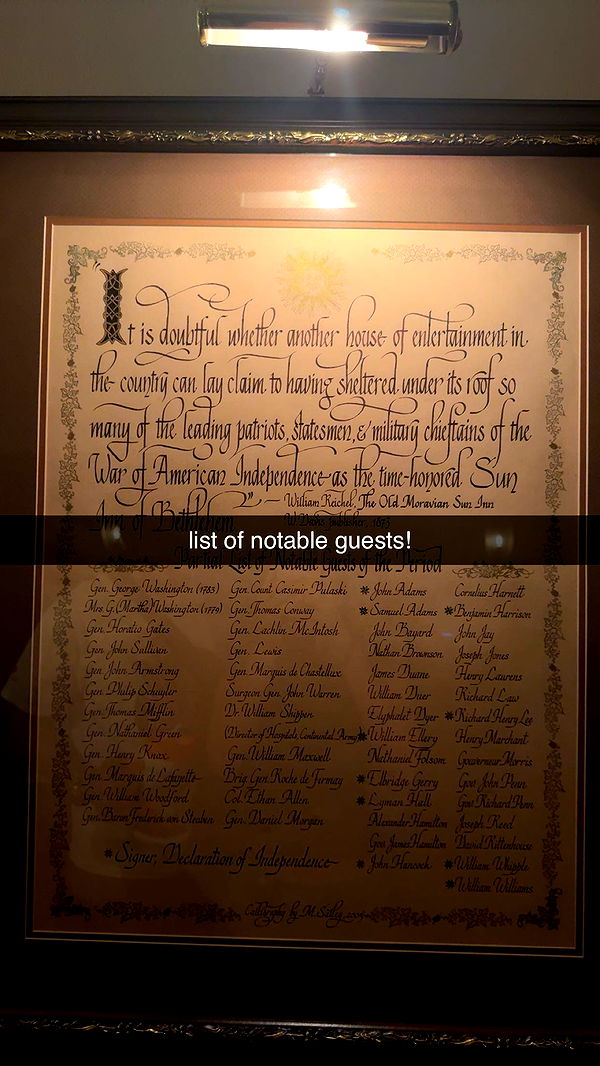 "It is doubtful whether another house of entertainment in
the country can lay claim to having sheltered under its roof so
many of the leading patriots, statesmen, & military chieftains of the
War of American Independence as the time-honored Sun
Inn of Bethlehem." — William Reichel, The Old Moravian Sun Inn
W. Doubs, publisher, 1873
list of notable guests!
Partial List of Notable Guests of the Period
Gen. George Washington (1783)
Mrs. G. (Martha) Washington (1779)
Gen. Horatio Gates
Gen. John Sullivan
Gen. John Armstrong
Gen. Philip Schuyler
Gen. Thomas Mifflin
Gen. Nathaniel Green
Gen. Henry Knox
Gen. Marquis de Lafayette
Gen. William Woodford
Gen. Baron Frederick von Steuben
Gen. Count Casimir Pulaski
Gen. Thomas Conway
Gen. Lachlin McIntosh
Gen. Lewis
Gen. Marquis de Chastellux
Surgeon Gen. John Warren
Dr. William Shippen
(Director of Hospitals, Continental Army)
Gen. William Maxwell
Brig. Gen. Roche de Fermay
Col. Ethan Allen
Gen. Daniel Morgan
* John Adams
* Samuel Adams
John Bayard
Nathan Brownson
James Duane
William Duer
Elyphalet Dyer
* William Ellery
Nathaniel Folsom
* Elbridge Gerry
* Lyman Hall
Alexander Hamilton
Gov. James Hamilton
* John Hancock
Cornelius Harnett
* Benjamin Harrison
John Jay
Joseph Jones
Henry Laurens
Richard Law
* Richard Henry Lee
Henry Marchant
Gouverneur Morris
Gov. John Penn
Gov. Richard Penn
Joseph Reed
David Rittenhouse
* William Whipple
* William Williams
* Signer, Declaration of Independence
Calligraphy by M. Sibley, 2005